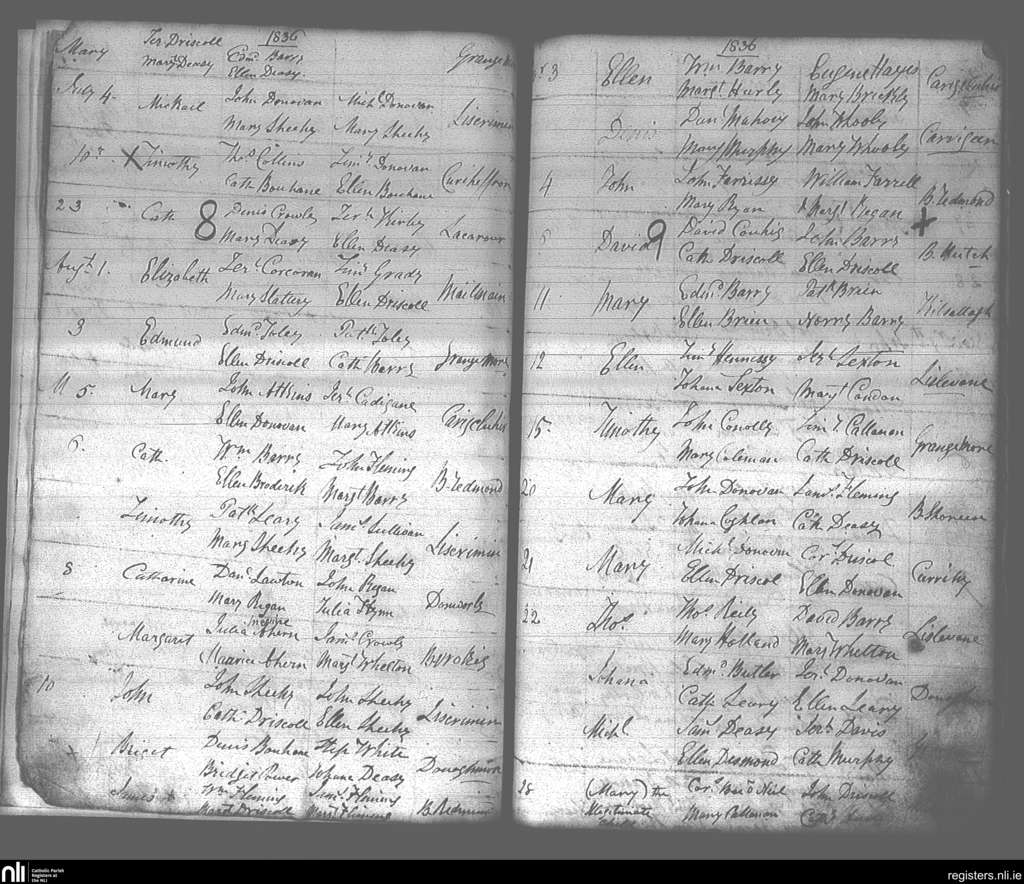 1836
Mary Jer. Driscoll Edmd. Barry Grange
Mary Deasy Ellen Deasy
July 4. Michael John Donovan Michl. Donovan Liscrimin
Mary Sheehy Mary Sheehy
10th X Timothy Thos. Collins Timy. Donovan
Cath Bouhane Ellen Bouhane
23 Cath 8 Denis Crowley Jerh. Hurley Lacarour
Mary Deasy Ellen Deasy
Augt. 1. Elizabeth Jer. Corcoran Timy. Grady
Mary Slattery Ellen Driscoll
3 Edmund Edmd. Foley Patk. Foley Grangemore
Ellen Driscoll Cath Barry
5. Mary John Attkins Jerh. Cadigane Carigcluhir
Ellen Donovan Mary Attkins
6. Cath. Wm. Barry John Fleming B. Redmond
Ellen Broderik Margt Barry
Timothy Patk. Leary Saml. Sullivan Liscrimin
Mary Sheehy Margt. Sheehy
8 Catharine Danl. Lawton John Regan Donworly
Mary Regan Julia Flynn
inquire
Margaret Julia Ahern Jams. Crowly
Maurice Ahern Margt Whelton
10 John John Sheehy John Sheehy Liscrimin
Cath. Driscoll Ellen Sheehy
Briget Denis Bouhane Step White Donoghmore
Bridget Power Johana Deasy
James Wm. Fleming Jams. Fleming B. Redmond
Margt Driscoll Margt Fleming
1836
3 Ellen Wm. Barry Eugene Hayes Carigcluhir
Margt. Hurly Mary Brickly
Denis Dan. Mahony John Whooly Carrigeen
Mary Murphy Mary Whooly
4 John John Farrissy William Farrell B. Redmond
Mary Ryan Margt. Regan
David 9 David Couhig John Barry B. Hutch
Cath Driscoll Ellen Driscoll
11. Mary Edmd. Barry Patk. Brien Kilsallagh
Ellen Brien Norry Barry
12 Ellen Timy. Hennessy Jerh. Sexton Lislevane
Johana Sexton Margt Condon
15. Timothy John Conolly Timy. Callanan Grangemore
Mary Coleman Cath Driscoll
20 Mary John Donovan Laur. Fleming
Johana Coghlan Cath Deasy
21 Mary Michl. Donovan Cor. Driscol
Ellen Driscol Ellen Donovan
22 Thos. Thos. Reily David Barry Lislevane
Mary Holland Mary Whelton
Johana Edmd. Butler Jer. Donovan
Cath Leary Ellen Leary
Michl. Saml. Deasy Jerh. Davis
Ellen Desmond Cath Murphy
28 (Mary) the Cors. John Driscoll
Illegitimate Mary Callanan
nli
Catholic Parish
Registers at
the NLI
registers.nli.ie